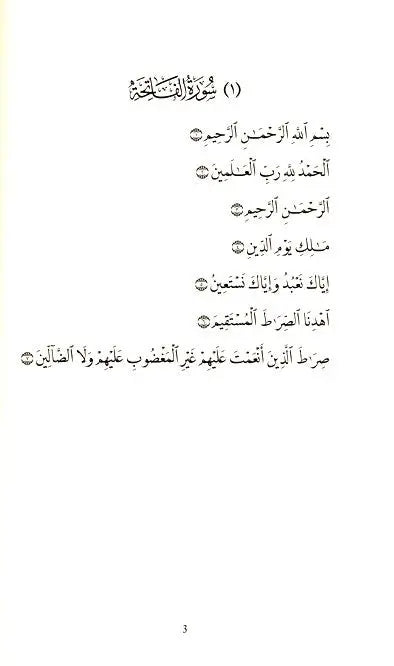 (١) سُورَةُ الفَاتِحَة
بِسْمِ ٱللَّهِ ٱلرَّحْمَـٰنِ ٱلرَّحِيمِ
ٱلْحَمْدُ لِلَّهِ رَبِّ ٱلْعَـٰلَمِينَ
ٱلرَّحْمَـٰنِ ٱلرَّحِيمِ
مَـٰلِكِ يَوْمِ ٱلدِّينِ
إِيَّاكَ نَعْبُدُ وَإِيَّاكَ نَسْتَعِينُ
ٱهْدِنَا ٱلصِّرَٰطَ ٱلْمُسْتَقِيمَ
صِرَٰطَ ٱلَّذِينَ أَنْعَمْتَ عَلَيْهِمْ غَيْرِ ٱلْمَغْضُوبِ عَلَيْهِمْ وَلَا ٱلضَّآلِّينَ
3